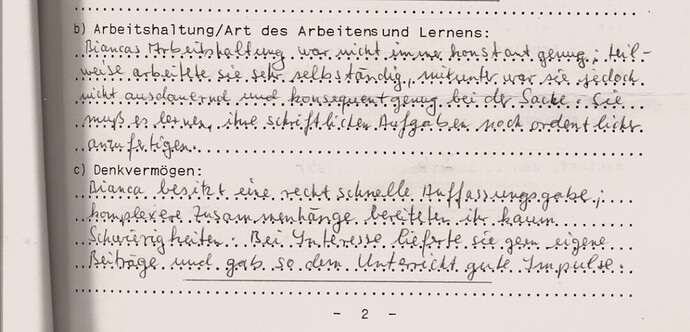 b) Arbeitshaltung/Art des Arbeitens und Lernens:
Biancas Arbeitshaltung war nicht immer konstant genug; teil-
weise arbeitete sie sehr selbständig, mitunter war sie jedoch
nicht ausdauernd und konsequent genug bei der Sache. Sie
muß es lernen, ihre schriftlichen Aufgaben noch ordentlicher
anzufertigen.
c) Denkvermögen:
Bianca besitzt eine recht schnelle Auffassungsgabe;
komplexere Zusammenhänge bereiteten ihr kaum
Schwierigkeiten. Bei Interesse lieferte sie gern eigene
Beiträge und gab so dem Unterricht gute Impulse.
- 2 -